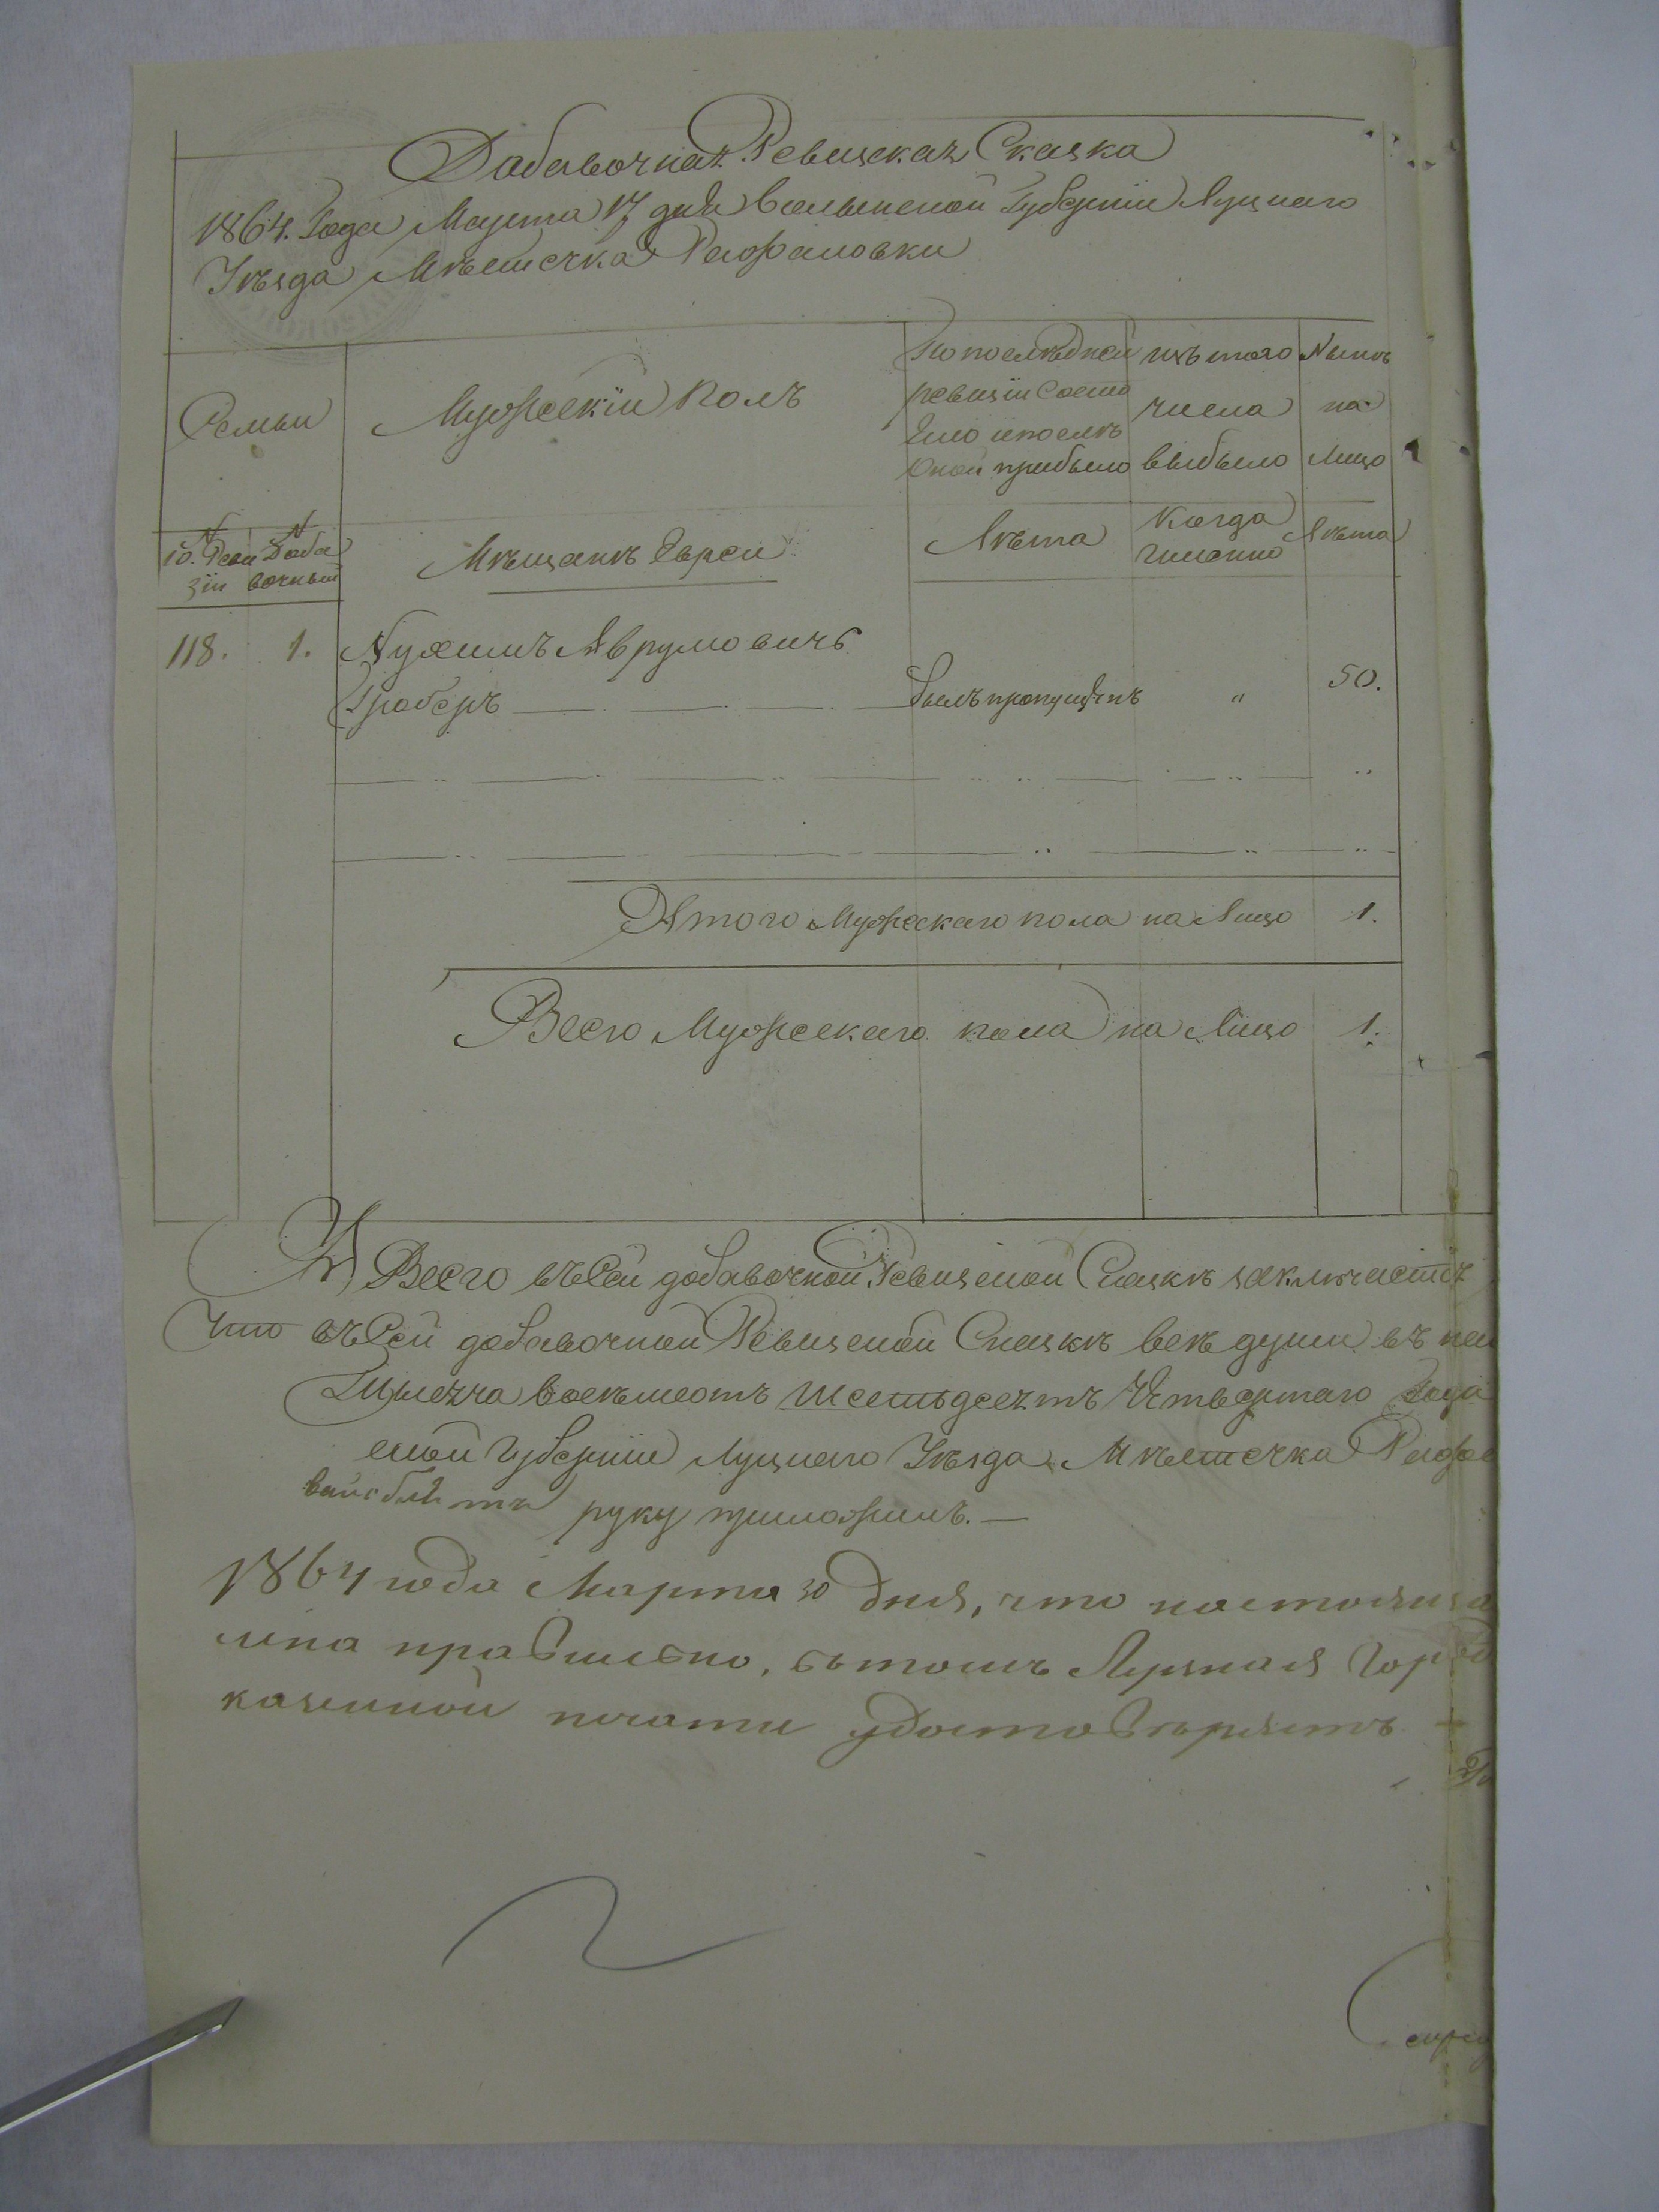 Добавочная Ревизская Сказка
1864. Года Марта 17 дня Волынской Губерніи Луцкаго
Уѣзда Мѣстечка Рафаловки
Семьи
Мужескій полъ
По послѣдней
ревизіи состо
яло и послѣ
оной прибыло
изъ того
числа
выбыло
Нынѣ
на
Лицо
N N
10. Реви Доба
зіи вочный
Мѣщанѣ Евреи
Лѣта
Когда
именно
Лѣта
118. 1. Нухимъ Аврумовичъ
Граберъ былъ пропущенъ " 50.
Итого Мужескаго пола на Лицо 1.
Всего Мужескаго пола на Лицо 1.
А Всего въ Сей добавочной Ревизской Сказкѣ заключается
Что въ Сей добавочной Ревизской Сказкѣ всѣ души въ
Тысяча восемьсотъ шестьдесятъ Четвертаго Года
ской Губерніи Луцкаго Уѣзда Мѣстечка Рафа
руку приложилъ.
1864 года Марта 30 дня, что настояща
лена правильно, въ томъ Луцкая Город
казенной печати удостовѣряетъ